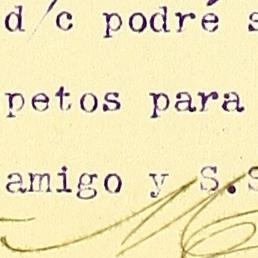 d/c podré s
petos para
amigo y S.S